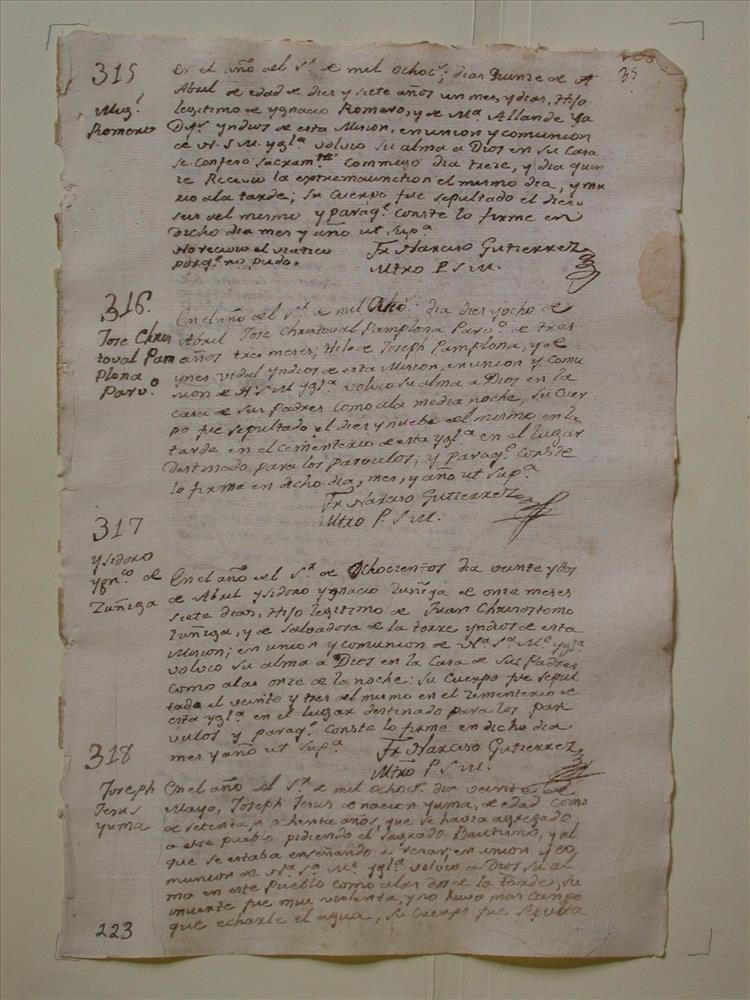 35
315
En el año del S.r de mil ochoc.s; dias Quinze de A
Abril de edad de dies y siete años un mes, y dias, Hijo
Mig.l
Romero
legitimo de ygnacio Romero, y de M.a Allande ya
D.s yndios de esta Mision, en union y comunion
de N. S. M. ygl.a volvio su alma a Dios en su Casa
se confeso sacram.te commigo dia treze, y dia quin
ze Recivio la extremauncion el mismo dia, y mu
rio ala tarde; su Cuerpo fue sepultado el diez y
seis del mismo y paraq.e conste lo firme en
dicho dia mes y año ut sup.a
No recivio el viatico
porq.e no pudo.
Fr. Narciso Gutierrez
Mtro P. S. M.
316.
Jose Chris
toval Pam
plona
Parv.o
En el año del S.r de mil Ocho.s dia dies yocho de
Abril Jose Christoval Pamplona Parv.o de tres
años tres meses; Hijo de Joseph Pamplona, y de
ynes vidal yndios de esta Mision, en union y comu
nion de N S M ygl.a volvio su alma a Dios en la
casa de sus Padres como ala media noche, su Cuer
po fue sepultado el dies y nuebe del mismo en la
tarde en el cementerio de esta ygl.a en el lugar
destinado para los parvulos; y paraq.e conste
lo firme en dicho dia, mes, y año ut sup.a
Fr Narciso Gutierrez
Mtro P. S M.
317
ysidoro
ygn.co de
Zuñiga
En el año del S.r de Ochocientos dia veinte y dos
de Abril ysidoro ygnacio Zuñiga de onze meses
siete dias, Hijo legitimo de Juan Chrisostomo
Zuñiga, y de Salvadora de la torre yndios de esta
Mision; en union y comunion de N.a S.a M.e ygl.a
volvio su alma a Dios en la Casa de sus Padres
como alas onze de la noche: su Cuerpo fue sepul
tado el veinte y tres del mismo en el zimenterio de
esta ygl.a en el lugar destinado para los par
vulos y paraq.e Conste lo firme en dicho dia
mes y año ut sup.a
Fr Narciso Gutierrez
Mtro P. S M.
318
Joseph
Jesus
yuma
En el año del S.r de mil ochoc.s dia veinte de
Mayo, Joseph Jesus de nacion yuma, de edad como
de setenta, a ochenta años, que se havia agregado
a este pueblo pidiendo el sagrado Bautismo, y al
que se estaba enseñando a rezar; en union y co
munion de N.a S.a M.e ygl.a volvio a Dios su al
ma en este Pueblo como alas dos de la tarde, su
muerte fue muy violenta, y no huvo mas campo
que echarle el agua, su Cuerpo fue sepulta
223